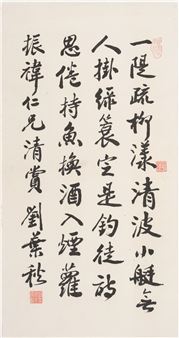 一隄疏柳漾清波小艇無
人掛綠簑定是釣徒詩
思倦持魚換酒入煙蘿
振禕仁兄清賞劉葉秋